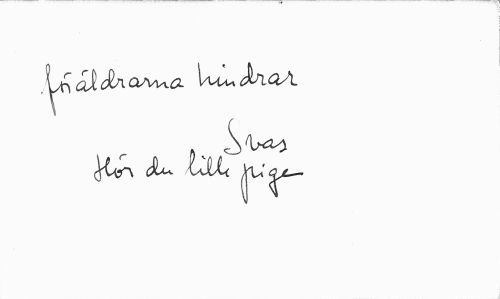 föräldrarna hindrar
Svas
Hör du lille pige